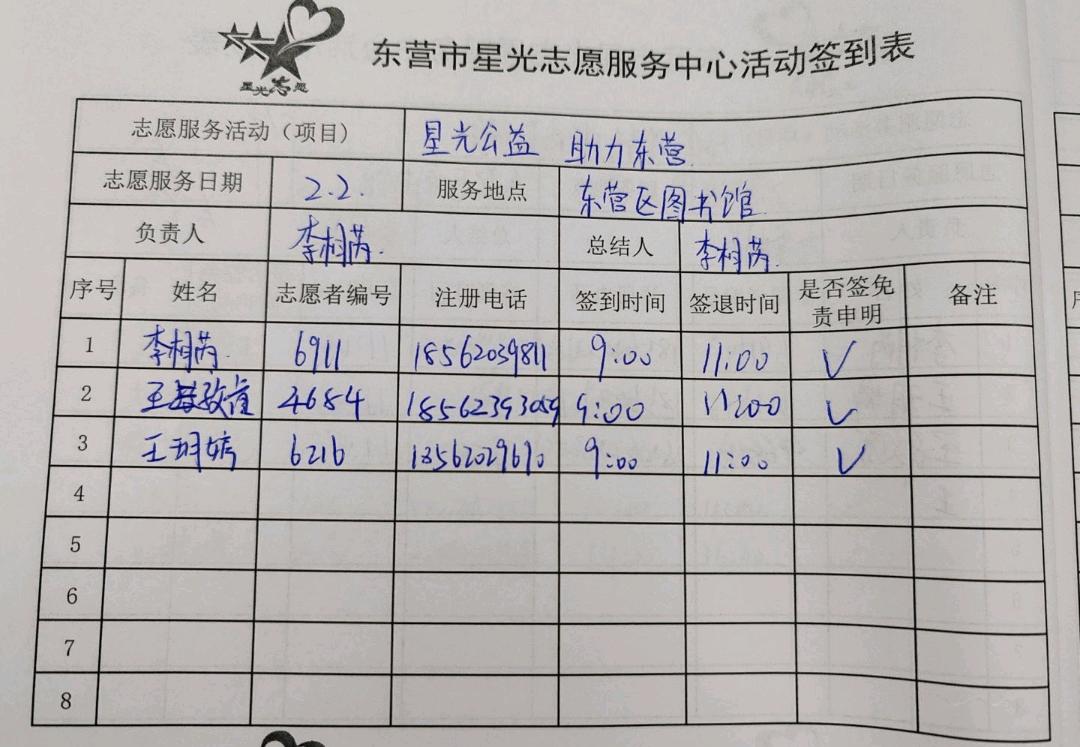 星光志愿
东营市星光志愿服务中心活动签到表
志愿服务活动（项目） 星光公益 助力东营
志愿服务日期 2.2. 服务地点 东营区图书馆
负责人 李相芮. 总结人 李相芮.
序号 姓名 志愿者编号 注册电话 签到时间 签退时间 是否签免责申明 备注
1 李相芮. 6911 18562039811 9:00 11:00 √
2 王 4684 18562393059 9:00 11:00 √
3 王玥婷 6216 18562029670 9:00 11:00 √
4
5
6
7
8